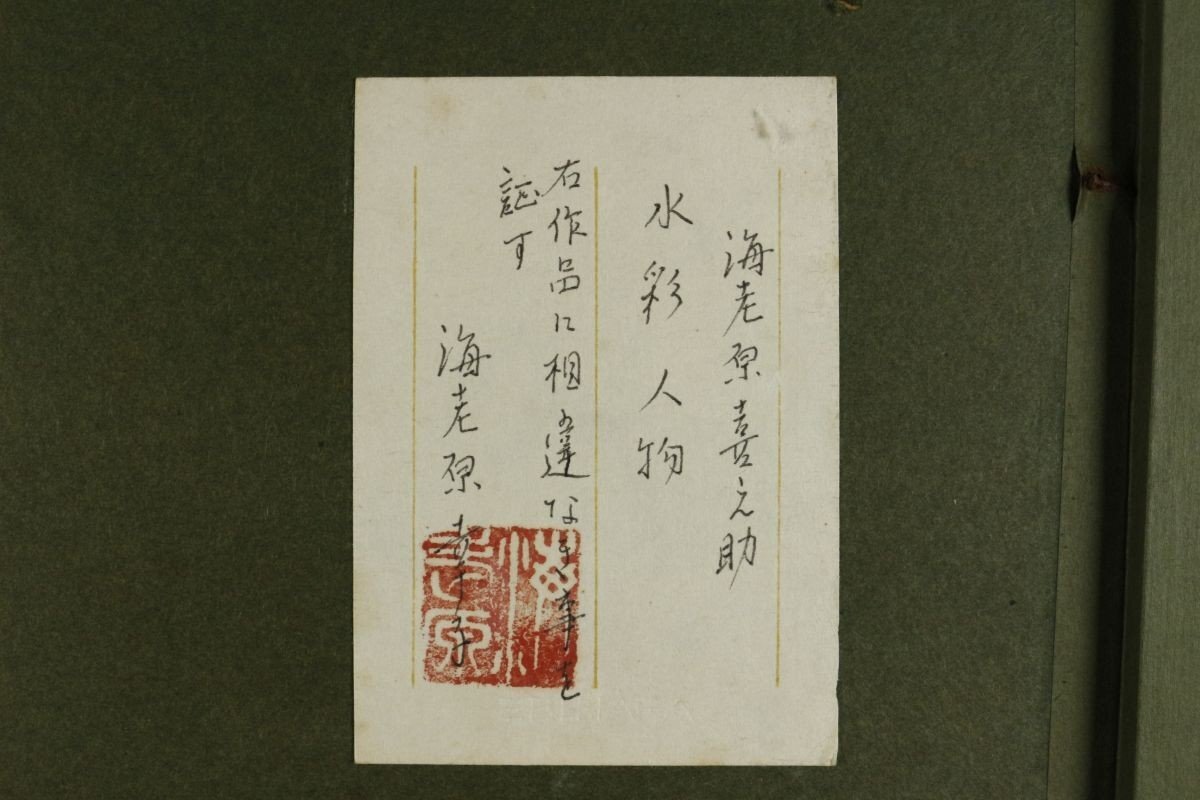 海老原喜之助
水彩人物
右作品に相違なき事を
証す
海老原幸子
海老原